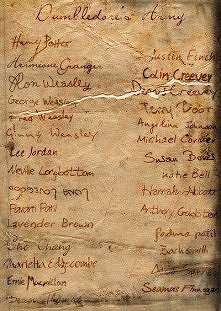 Dumbledore's Army
Harry Potter
Hermione Granger
Ron Weasley
George Weasley
Fred Weasley
Ginny Weasley
Lee Jordan
Neville Longbottom
Parvati Patil
Lavender Brown
Cho Chang
Marietta Edgecombe
Ernie Macmillan
Justin Finch
Colin Creevey
Dennis Creevey
Terry Boot
Angelina Johnson
Michael Corner
Susan Bones
Katie Bell
Hannah Abbott
Anthony Goldstein
Padma Patil
Zach Smith
Seamus Finnigan